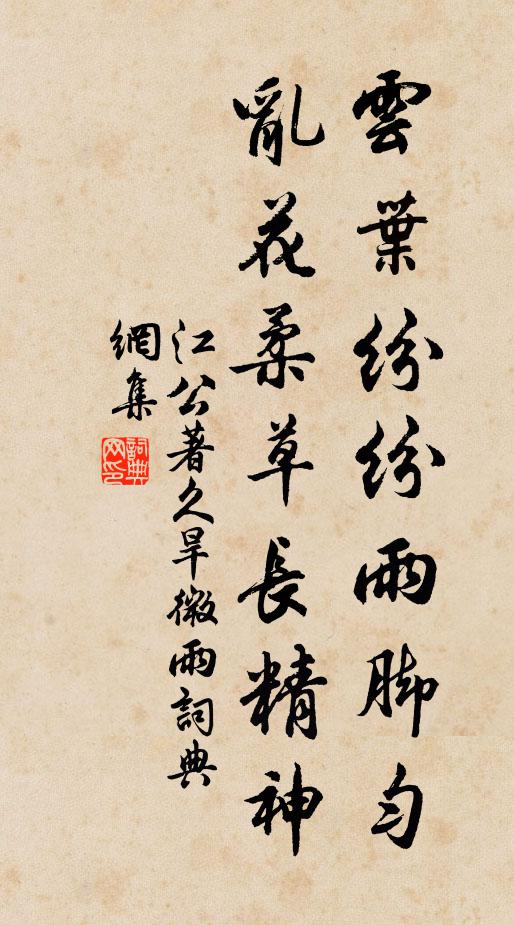 雲葉紛紛雨脚勻
亂花柔草長精神
江公著久旱微雨詞典
網集
詞典網印